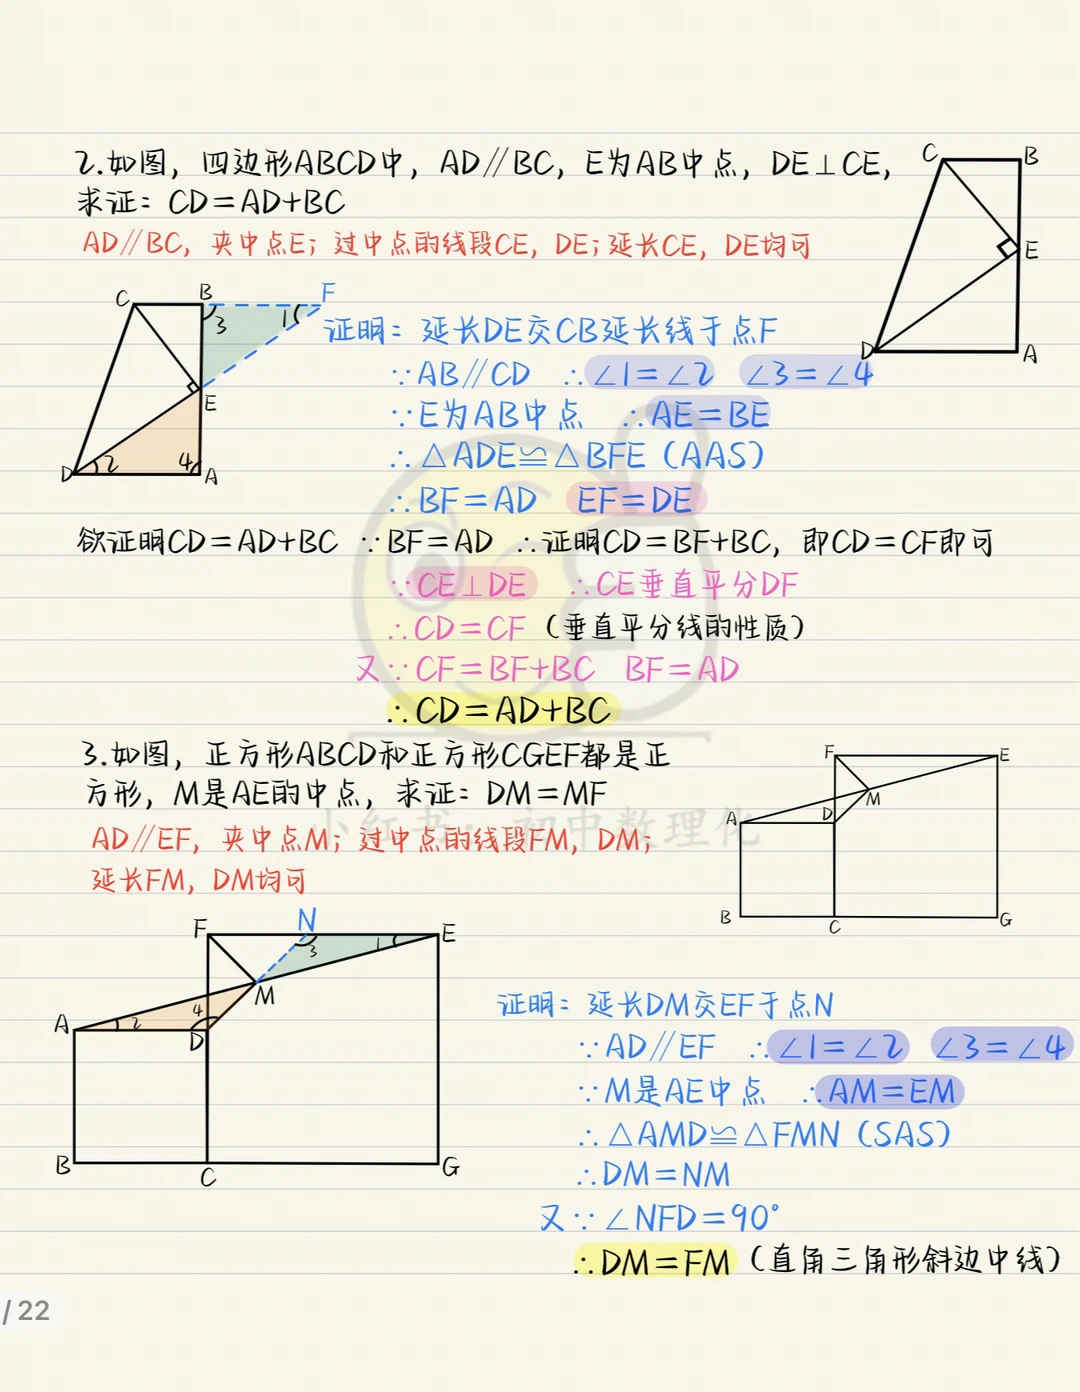 2.如图，四边形ABCD中，AD∥BC，E为AB中点，DE⊥CE，
求证：CD=AD+BC
AD∥BC，夹中点E；过中点的线段CE，DE；延长CE，DE均可
C B
E
D A
C B F
3 1
E
D 2 4 A
证明：延长DE交CB延长线于点F
∵AB∥CD ∴∠1=∠2 ∠3=∠4
∵E为AB中点 ∴AE=BE
∴△ADE≌△BFE（AAS）
∴BF=AD EF=DE
欲证明CD=AD+BC ∵BF=AD ∴证明CD=BF+BC，即CD=CF即可
∵CE⊥DE ∴CE垂直平分DF
∴CD=CF（垂直平分线的性质）
又∵CF=BF+BC BF=AD
∴CD=AD+BC
3.如图，正方形ABCD和正方形CGEF都是正
方形，M是AE的中点，求证：DM=MF
小红书：初中数理化
AD∥EF，夹中点M；过中点的线段FM，DM；
延长FM，DM均可
F E
M
A D
B C G
F N E
3 1
M
A 2 4 D
B C G
证明：延长DM交EF于点N
∵AD∥EF ∴∠1=∠2 ∠3=∠4
∵M是AE中点 ∴AM=EM
∴△AMD≌△FMN（SAS）
∴DM=NM
又∵∠NFD=90°
∴DM=FM（直角三角形斜边中线）
/ 22